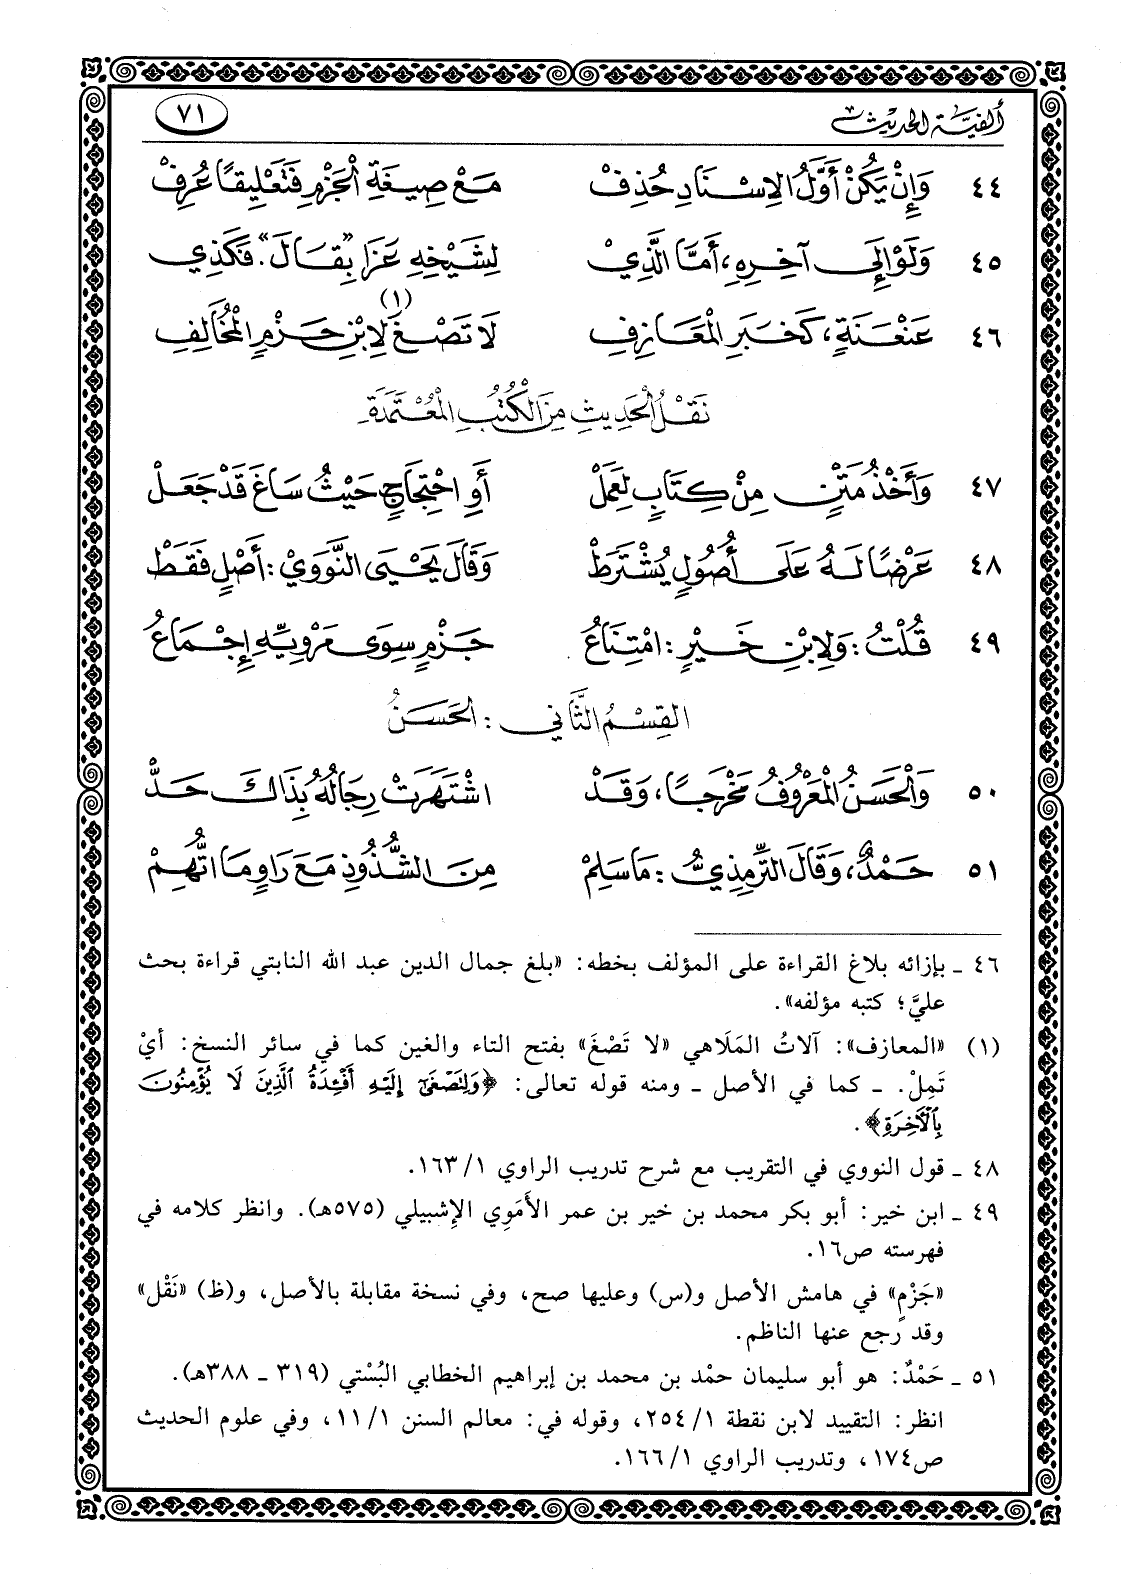 ألفية الحديث ٧١
٤٤ وَإِنْ يَكُنْ أَوَّلُ الِاسْنَادِ حُذِفْ مَعْ صِيغَةِ الْجَزْمِ فَتَعْلِيقًا عُرِفْ
٤٥ وَلَوْ إِلَى آخِرِهِ، أَمَّا الَّذِيْ لِشَيْخِهِ عَزَا بِـ«قَالَ». فَكَذِي
٤٦ عَنْعَنَةٍ، كَخَبَرِ الْمَعَازِفِ لَا تَصْغَ(١) لِابْنِ حَزْمٍ الْمُخَالِفِ
نَقْلُ الْحَدِيثِ مِنَ الْكُتُبِ الْمُعْتَمَدَةِ
٤٧ وَأَخْذُ مَتْنٍ مِنْ كِتَابٍ لِعَمَلْ أَوِ احْتِجَاجٍ حَيْثُ سَاغَ قَدْ جَعَلْ
٤٨ عَرْضًا لَهُ عَلَى أُصُولٍ يُشْتَرَطْ وَقَالَ يَحْيَى النَّوَوِيْ: أَصْلٍ فَقَطْ
٤٩ قُلْتُ: وَلِابْنِ خَيْرٍ: امْتِنَاعُ جَزْمٍ سِوَى مَرْوِيِّهِ إِجْمَاعُ
القِسْمُ الثَّانِي: الحَسَنُ
٥٠ وَالْحَسَنُ الْمَعْرُوفُ مَخْرَجًا، وَقَدْ اشْتَهَرَتْ رِجَالُهُ بِذَاكَ حَدّْ
٥١ حَمْدٌ، وَقَالَ التِّرْمِذِيُّ: مَا سَلِمْ مِنَ الشُّذُوذِ مَعَ رَاوٍ مَا اتُّهِمْ
٤٦ ـ بإزائه بلاغ القراءة على المؤلف بخطه: «بلغ جمال الدين عبد الله النابتي قراءة بحث
عليَّ؛ كتبه مؤلفه».
(١) «المعازف»: آلاتُ المَلَاهي «لا تَصْغَ» بفتح التاء والغين كما في سائر النسخ: أيْ
تَمِلْ. ـ كما في الأصل ـ ومنه قوله تعالى: ﴿وَلِتَصْغَىٰ إِلَيْهِ أَفْئِدَةُ ٱلَّذِينَ لَا يُؤْمِنُونَ
بِٱلْآخِرَةِ﴾.
٤٨ ـ قول النووي في التقريب مع شرح تدريب الراوي ١/١٦٣.
٤٩ ـ ابن خير: أبو بكر محمد بن خير بن عمر الأَمَوِي الإِشبيلي (٥٧٥هـ). وانظر كلامه في
فهرسته ص١٦.
«جَزْمِ» في هامش الأصل و(س) وعليها صح، وفي نسخة مقابلة بالأصل، و(ظ) «نَقْل»
وقد رجع عنها الناظم.
٥١ ـ حَمْدٌ: هو أبو سليمان حمْد بن محمد بن إبراهيم الخطابي البُسْتي (٣١٩ ـ ٣٨٨هـ).
انظر: التقييد لابن نقطة ١/٢٥٤، وقوله في: معالم السنن ١/١١، وفي علوم الحديث
ص١٧٤، وتدريب الراوي ١/١٦٦.